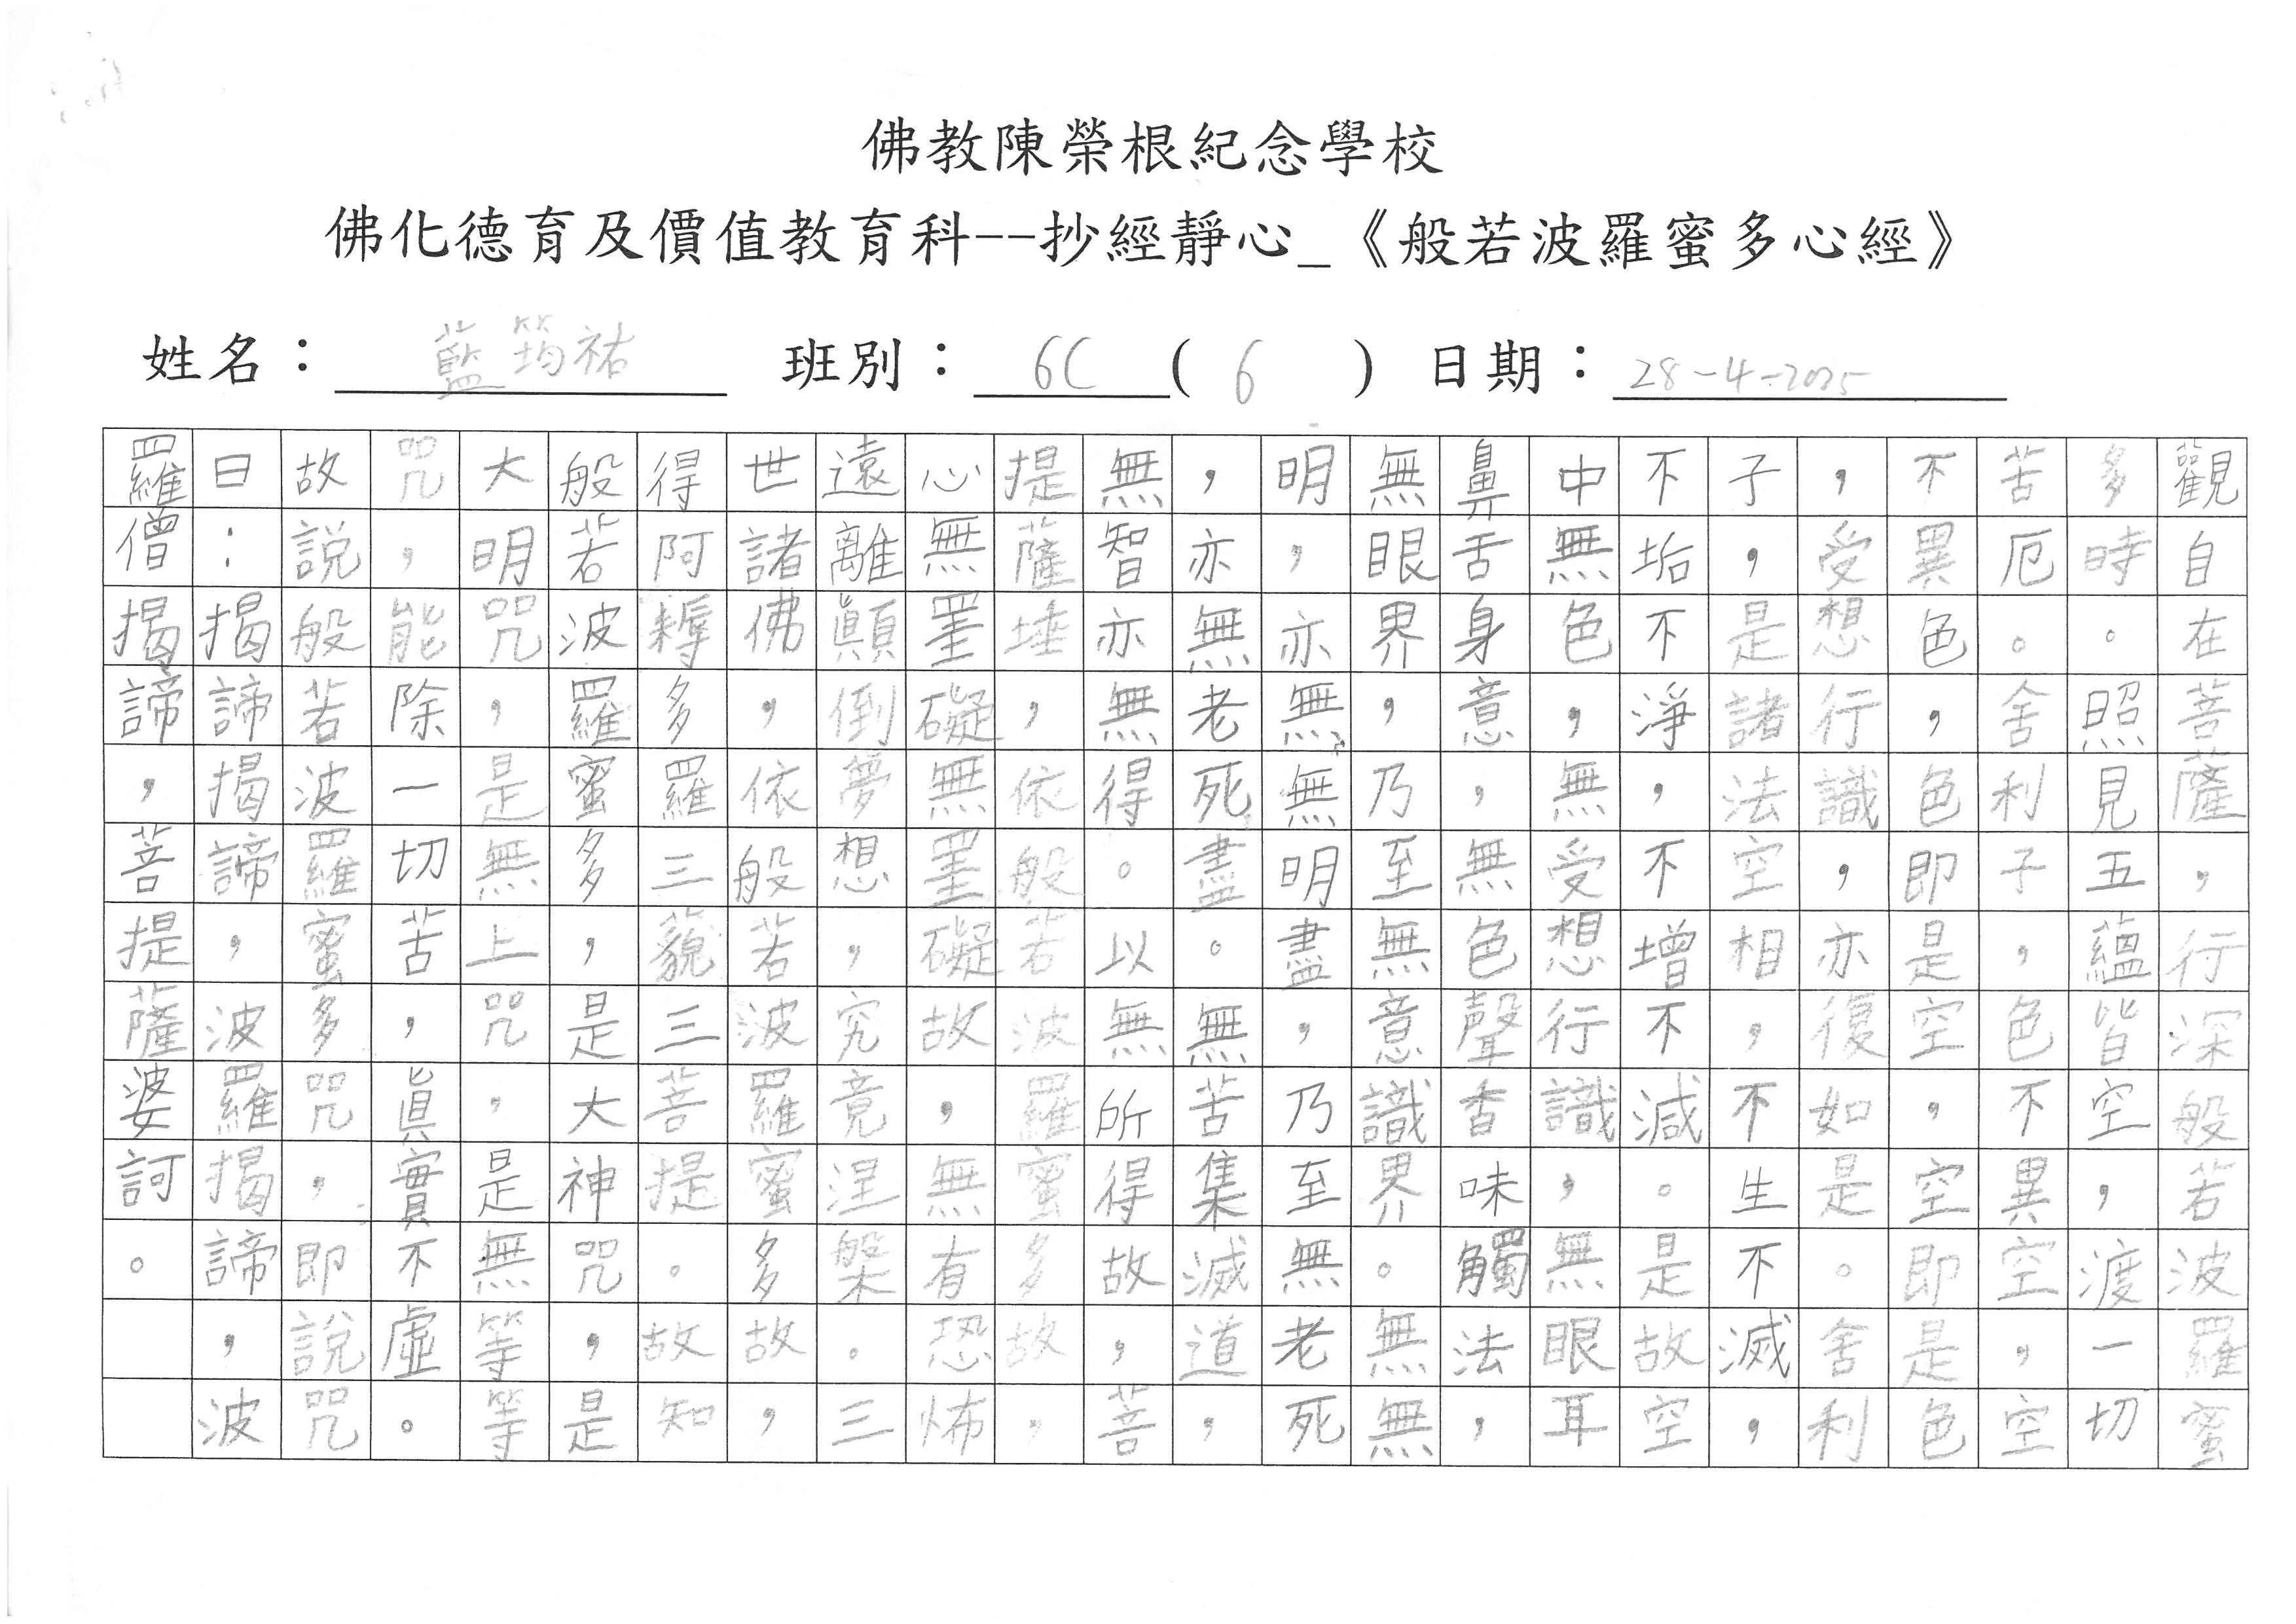 佛教陳榮根紀念學校
佛化德育及價值教育科--抄經靜心_《般若波羅蜜多心經》
姓名：藍筠祐 班別：6C(6) 日期：28-4-2025
觀自在菩薩，行深般若波羅蜜
多時照見五蘊皆空，渡一切
苦厄。舍利子，色不異空，空
不異色，色即是空，空即是色
，受想行識，亦復如是。舍利
子，是諸法空相，不生不滅，
不垢不淨，不增不減。是故空
中無色，無受想行識，無眼耳
鼻舌身意，無色聲香味觸法，
無眼界，乃至無意識界。無無
明，亦無無明盡，乃至無老死
，亦無老死盡。無苦集滅道，
無智亦無得。以無所得故，菩
提薩埵，依般若波羅蜜多故，
心無罣礙無罣礙故，無有恐怖
遠離顛倒夢想，究竟涅槃。三
世諸佛，依般若波羅蜜多故，
得阿耨多羅三藐三菩提。故知
般若波羅蜜多，是大神咒，是
大明咒，是無上咒，是無等等
咒，能除一切苦，真實不虛。
故說般若波羅蜜多咒，即說咒
曰：揭諦揭諦，波羅揭諦，波
羅僧揭諦，菩提薩婆訶。